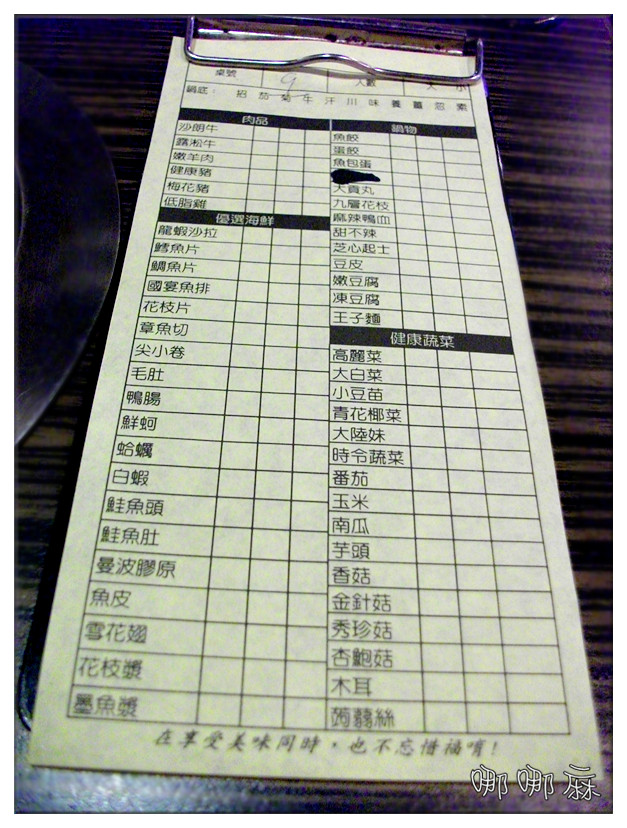 桌號 9 人數 大 小
鍋底: 招 茄 菊 牛 汗 川 味 養 薑 忽 素
肉品
沙朗牛
霜凇牛
嫩羊肉
健康豬
梅花豬
低脂雞
優選海鮮
龍蝦沙拉
鱈魚片
鯛魚片
國宴魚排
花枝片
章魚切
尖小卷
毛肚
鴨腸
鮮蚵
蛤蠣
白蝦
鮭魚頭
鮭魚肚
曼波膠原
魚皮
雪花翅
花枝漿
墨魚漿
鍋物
魚餃
蛋餃
魚包蛋
大貢丸
九層花枝
麻辣鴨血
甜不辣
芝心起士
豆皮
嫩豆腐
凍豆腐
王子麵
健康蔬菜
高麗菜
大白菜
小豆苗
青花椰菜
大陸妹
時令蔬菜
番茄
玉米
南瓜
芋頭
香菇
金針菇
秀珍菇
杏鮑菇
木耳
蒟蒻絲
在享受美味同時，也不忘惜福唷!
哪哪麻